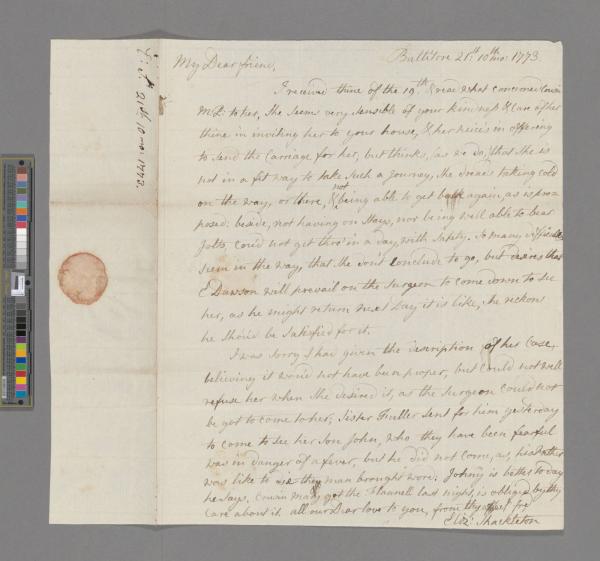 Ballitore 21st 10th mo: 1773.
My Dear friend,
I received thine of the 19th & read what concerned Cousin
M P. to her, She seems very sensible of your kindness & care of her
thine in inviting her to your house, & her neice's in offering
to send the Carriage for her, but thinks, (as we do,) that she is
not in a fit way to take such a journey, she dreads taking cold
on the way, or there, & not being able to get back again, as is pro=
posed: beside, not having on Stays, nor being well able to bear
Jolts, could not get thro' in a day, with safety. So many difficulties
seem in the way, that she don't conclude to go, but desires that
E Dawson will prevail on the surgeon to come down to see
her, as he might return next day it is like, she reckons
he shou'd be satisfied for it.
I was sorry I had given the description of her Case,
believing it wou'd not have been proper, but could not well
refuse her when she desired it, as the surgeon could not
be got to come to her; Sister Fuller sent for him yesterday
to come to see her Son John, who they have been fearful
was in danger of a fever, but he did not come, as, his Father
was like to die the man brought word; Johny is better to day
he says, Cousin Mary got the Flannell last night, is obliged by thy
Care about it all our Dear love to you, from thy fre
Eliz: Shackleton
21st 10 mo: 1773.